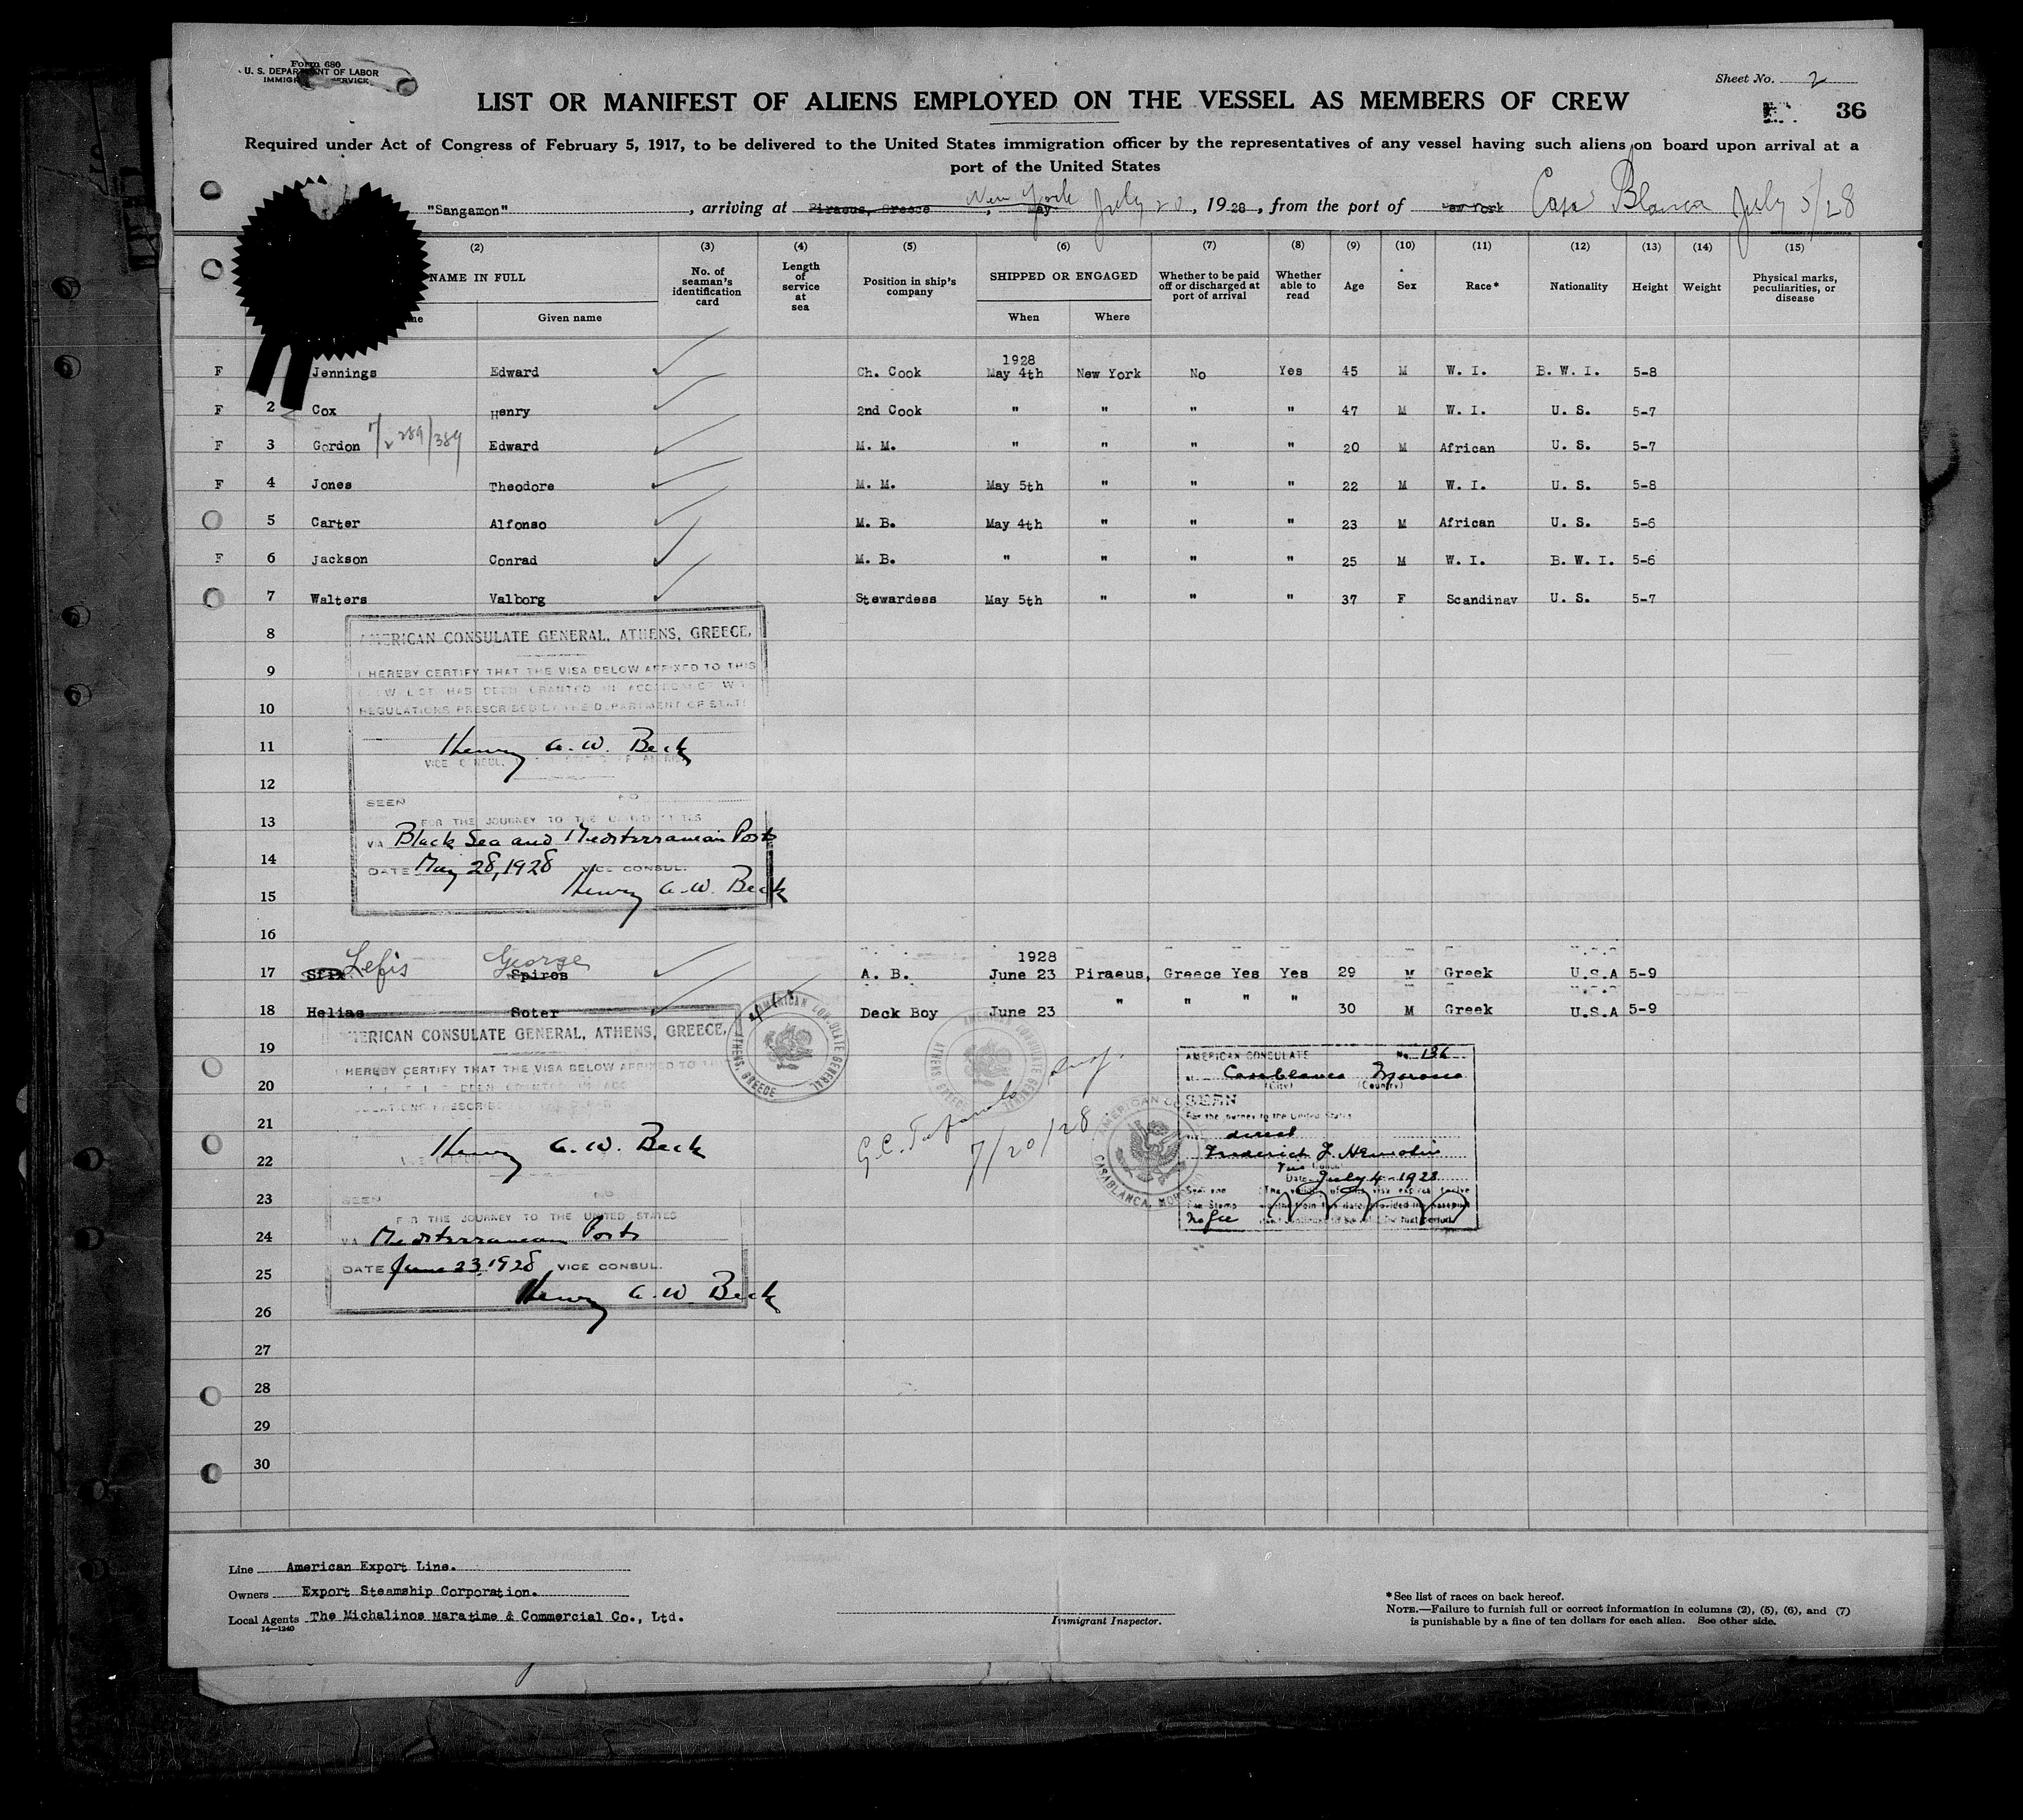 Form 680
U. S. DEPARTMENT OF LABOR
IMMIGR SERVICE
Sheet No. 2
LIST OR MANIFEST OF ALIENS EMPLOYED ON THE VESSEL AS MEMBERS OF CREW
36
Required under Act of Congress of February 5, 1917, to be delivered to the United States immigration officer by the representatives of any vessel having such aliens on board upon arrival at a
port of the United States
"Sangamon", arriving at Piraeus, Greece New York, May July 20, 1928, from the port of New York Casa Blanca July 5/28
(2) (3) (4) (5) (6) (7) (8) (9) (10) (11) (12) (13) (14) (15)
NAME IN FULL
Given name
No. of seaman's identification card
Length of service at sea
Position in ship's company
SHIPPED OR ENGAGED
When Where
Whether to be paid off or discharged at port of arrival
Whether able to read
Age
Sex
Race*
Nationality
Height
Weight
Physical marks, peculiarities, or disease
1928
F Jennings Edward Ch. Cook May 4th New York No Yes 45 M W. I. B. W. I. 5-8
F 2 Cox Henry 2nd Cook " " " " 47 M W. I. U. S. 5-7
F 3 Gordon Edward M. M. " " " " 20 M African U. S. 5-7
F 4 Jones Theodore M. M. May 5th " " " 22 M W. I. U. S. 5-8
5 Carter Alfonso M. B. May 4th " " " 23 M African U. S. 5-6
F 6 Jackson Conrad M. B. " " " " 25 M W. I. B. W. I. 5-6
7 Walters Valborg Stewardess May 5th " " " 37 F Scandinav U. S. 5-7
8
AMERICAN CONSULATE GENERAL, ATHENS, GREECE,
9
I HEREBY CERTIFY THAT THE VISA BELOW AFFIXED TO THIS
10
REGULATIONS PRESCRIBED BY THE DEPARTMENT OF STATE
11
Henry A. W. Beck
12
SEEN NO
13
FOR THE JOURNEY TO THE UNITED STATES
VIA Black Sea and Mediterranean Ports
14
DATE May 28, 1928 VICE CONSUL.
Henry A. W. Beck
15
16
1928
17 Lefis George Spiros A. B. June 23 Piraeus, Greece Yes Yes 29 M Greek U.S.A 5-9
18 Helias Soter Deck Boy June 23 " " " " 30 M Greek U.S.A 5-9
AMERICAN CONSULATE GENERAL, ATHENS, GREECE,
19
HEREBY CERTIFY THAT THE VISA BELOW AFFIXED TO
20
21
Henry A. W. Beck
22
23
SEEN NO
FOR THE JOURNEY TO THE UNITED STATES
24
VIA Mediterranean Ports
DATE June 23, 1928 VICE CONSUL.
25
Henry A. W. Beck
26
27
28
29
30
AMERICAN CONSULATE GENERAL
ATHENS, GREECE
AMERICAN CONSULATE GENERAL
ATHENS, GREECE
7/20/28
CASABLANCA, MOROCCO
AMERICAN CONSULATE No. 136
at Casablanca Morocco
(City) (Country)
SEEN
For the journey to the United States
direct
Date July 4 - 1928
No fee
Line American Export Line.
Owners Export Steamship Corporation.
Local Agents The Michalinos Maratime & Commercial Co., Ltd.
14—1240
Immigrant Inspector.
*See list of races on back hereof.
NOTE.—Failure to furnish full or correct information in columns (2), (5), (6), and (7)
is punishable by a fine of ten dollars for each alien. See other side.